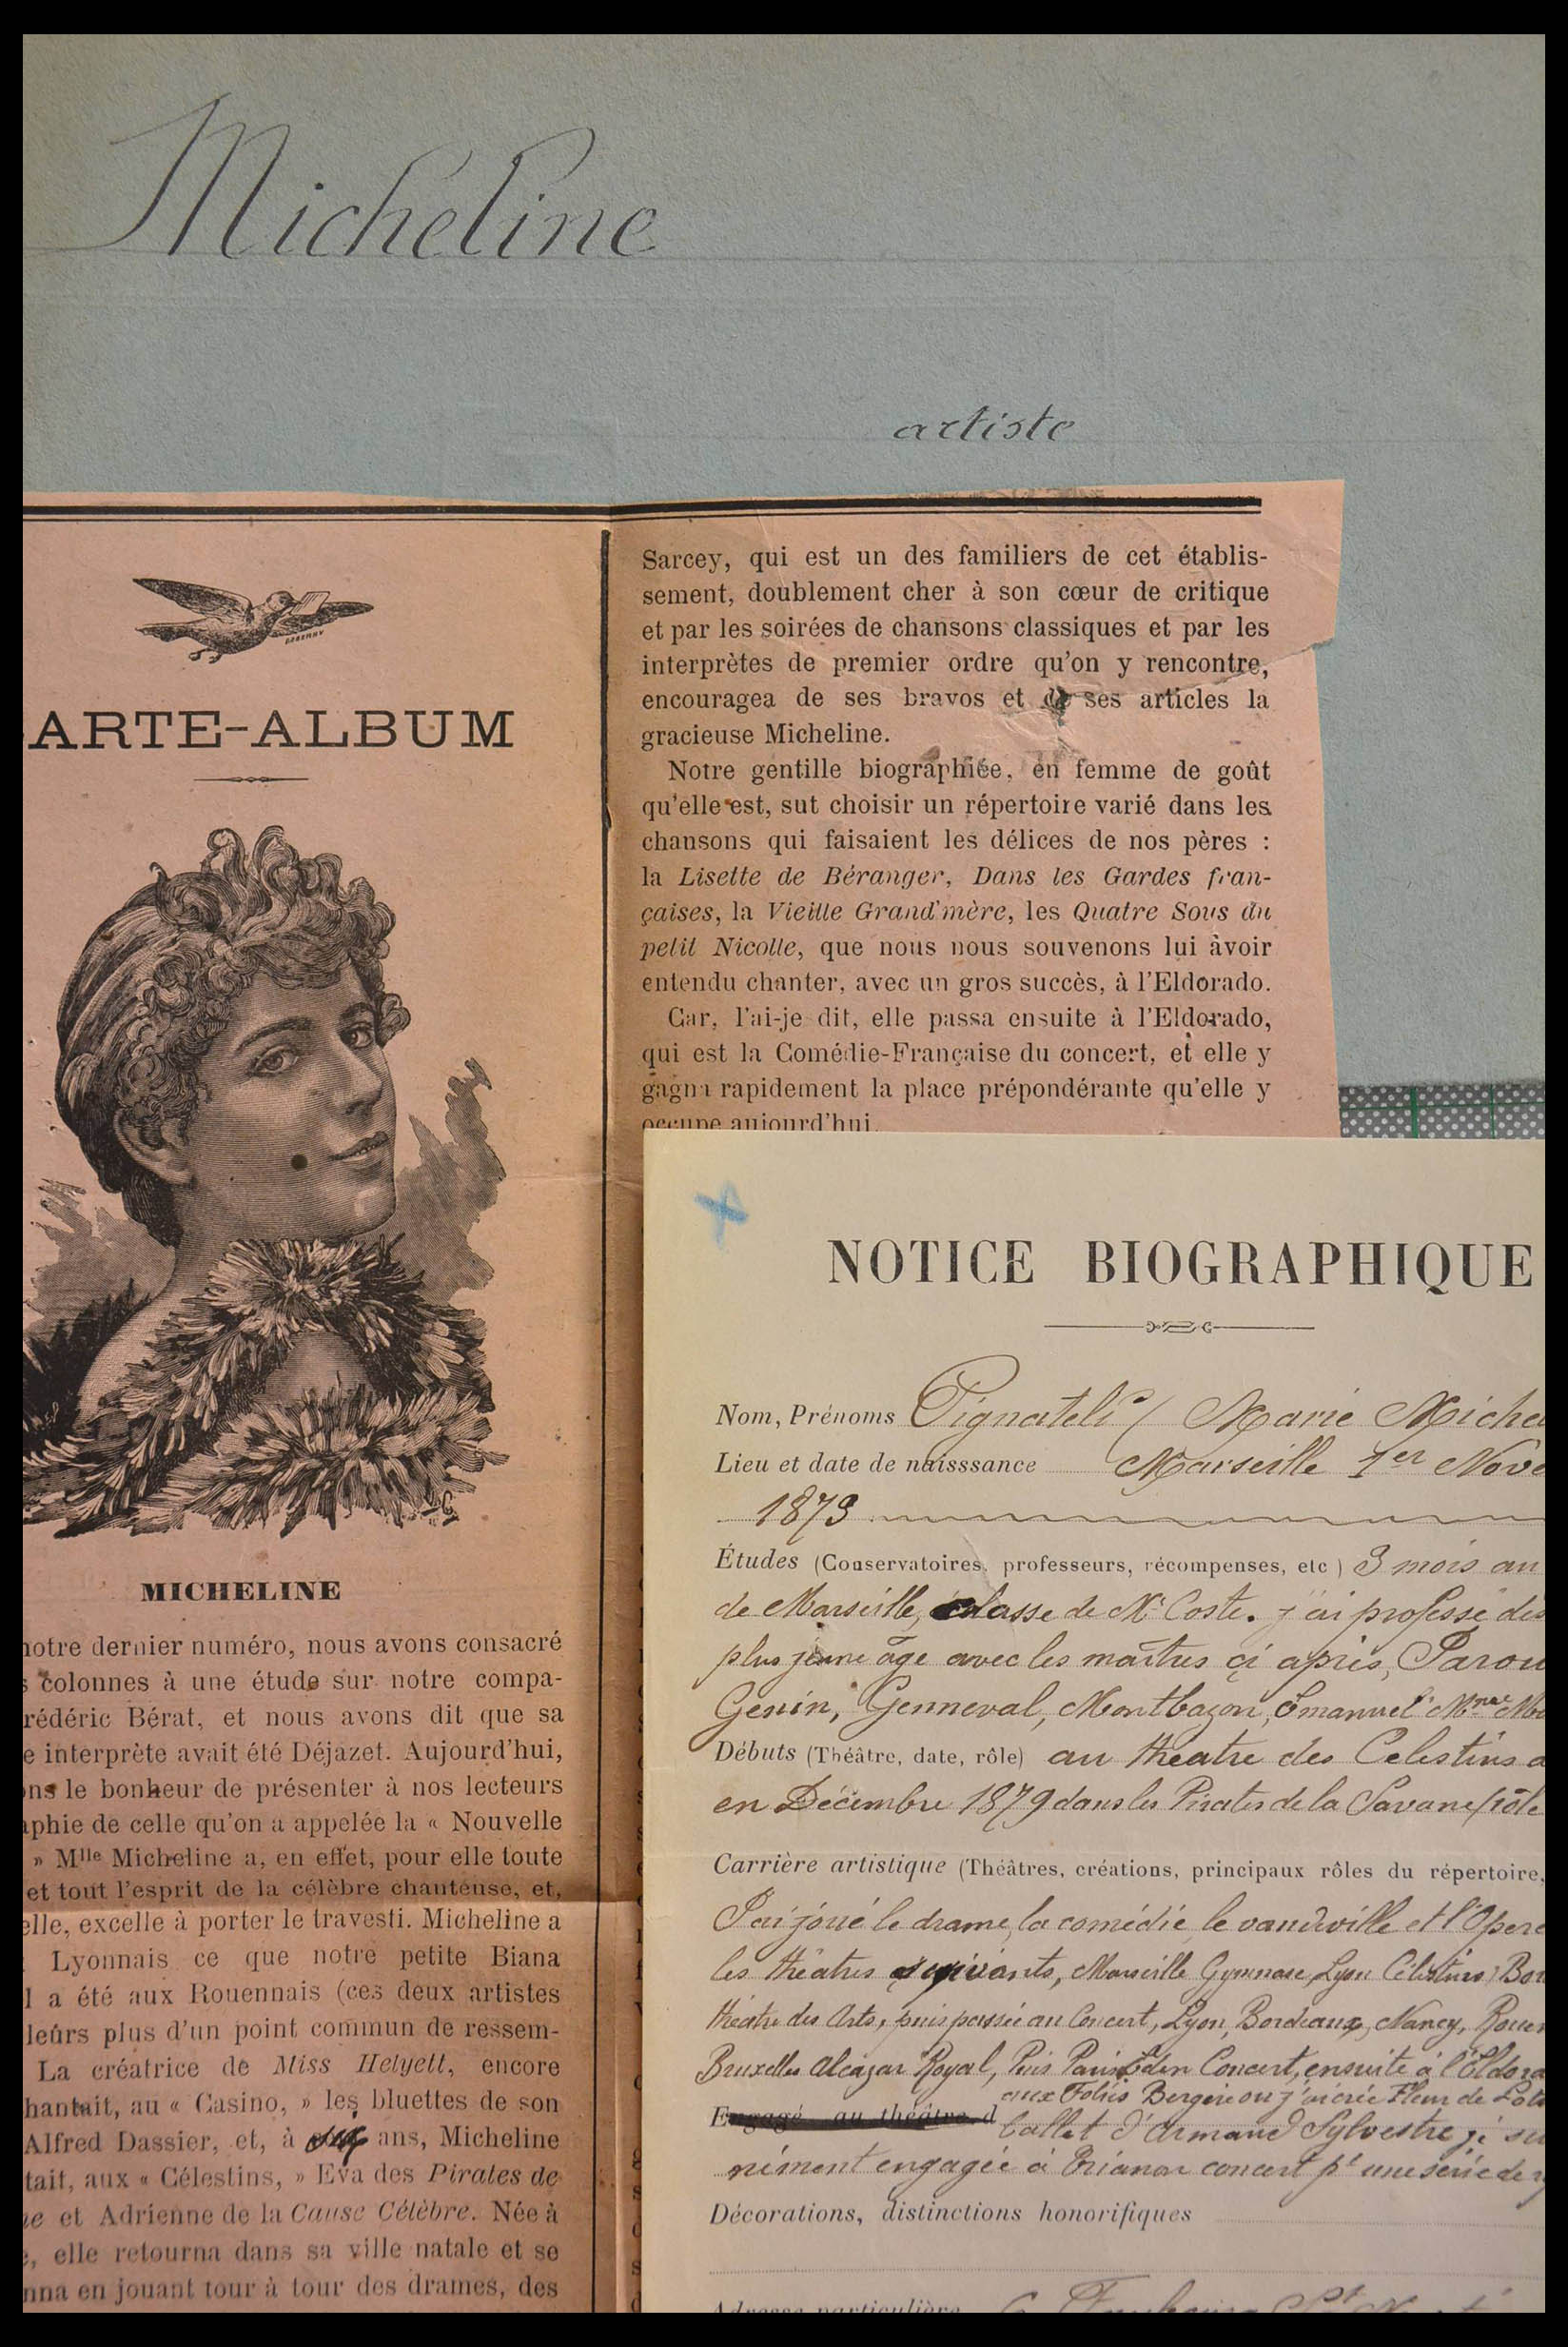 Micheline
artiste
ARTE-ALBUM
MICHELINE
notre dernier numéro, nous avons consacré
colonnes à une étude sur notre compa-
rédéric Bérat, et nous avons dit que sa
e interprète avait été Déjazet. Aujourd'hui,
ons le bonheur de présenter à nos lecteurs
aphie de celle qu'on a appelée la « Nouvelle
» Mlle Micheline a, en effet, pour elle toute
et tout l'esprit de la célèbre chanteuse, et,
elle, excelle à porter le travesti. Micheline a
Lyonnais ce que notre petite Biana
l a été aux Rouennais (ces deux artistes
leurs plus d'un point commun de ressem-
La créatrice de Miss Helyett, encore
hantait, au « Casino, » les bluettes de son
Alfred Dassier, et, à ans, Micheline
tait, aux « Célestins, » Eva des Pirates de
ne et Adrienne de la Cause Célèbre. Née à
e, elle retourna dans sa ville natale et se
nna en jouant tour à tour des drames, des
Sarcey, qui est un des familiers de cet établis-
sement, doublement cher à son cœur de critique
et par les soirées de chansons classiques et par les
interprètes de premier ordre qu'on y rencontre,
encouragea de ses bravos et de ses articles la
gracieuse Micheline.
Notre gentille biographiée, en femme de goût
qu'elle est, sut choisir un répertoire varié dans les
chansons qui faisaient les délices de nos pères :
la Lisette de Béranger, Dans les Gardes fran-
çaises, la Vieille Grand'mère, les Quatre Sous du
petit Nicolle, que nous nous souvenons lui avoir
entendu chanter, avec un gros succès, à l'Eldorado.
Car, l'ai-je dit, elle passa ensuite à l'Eldorado,
qui est la Comédie-Française du concert, et elle y
gagna rapidement la place prépondérante qu'elle y
occupe aujourd'hui.
NOTICE BIOGRAPHIQUE
Nom, Prénoms Pignateli / Marie Miche
Lieu et date de naisssance Marseille 1er Nove
1873
Études (Conservatoires, professeurs, récompenses, etc ) 3 mois au
de Marseille, classe de Mr Coste. j'ai professé dès
plus jeune âge avec les maîtres ci après, Parou
Genin, Genneval, Montbazon, Emanuel Mme Mo
Débuts (Théâtre, date, rôle) au theatre des Celestins a
en Décembre 1879 dans les Pirates de la Savane (rôle
Carrière artistique (Théâtres, créations, principaux rôles du répertoire,
J'ai joué le drame, la comédie, le vaudeville et l'Opere
les théatres suivants, Marseille Gymnase, Lyon Célestins, Bor
théatre des Arts, puis passée au Concert, Lyon, Bordeaux, Nancy, Rouen
Bruxelles Alcazar Royal, Puis Paris Eden Concert, ensuite à l'Eldora
aux Folies Bergère ou j'ai crée Fleur de Lotu
Engagé au théâtre d ballet d'Armand Sylvestre, je su
niment engagée à Trianon concert pt une série de
Décorations, distinctions honorifiques
Adresse particulière